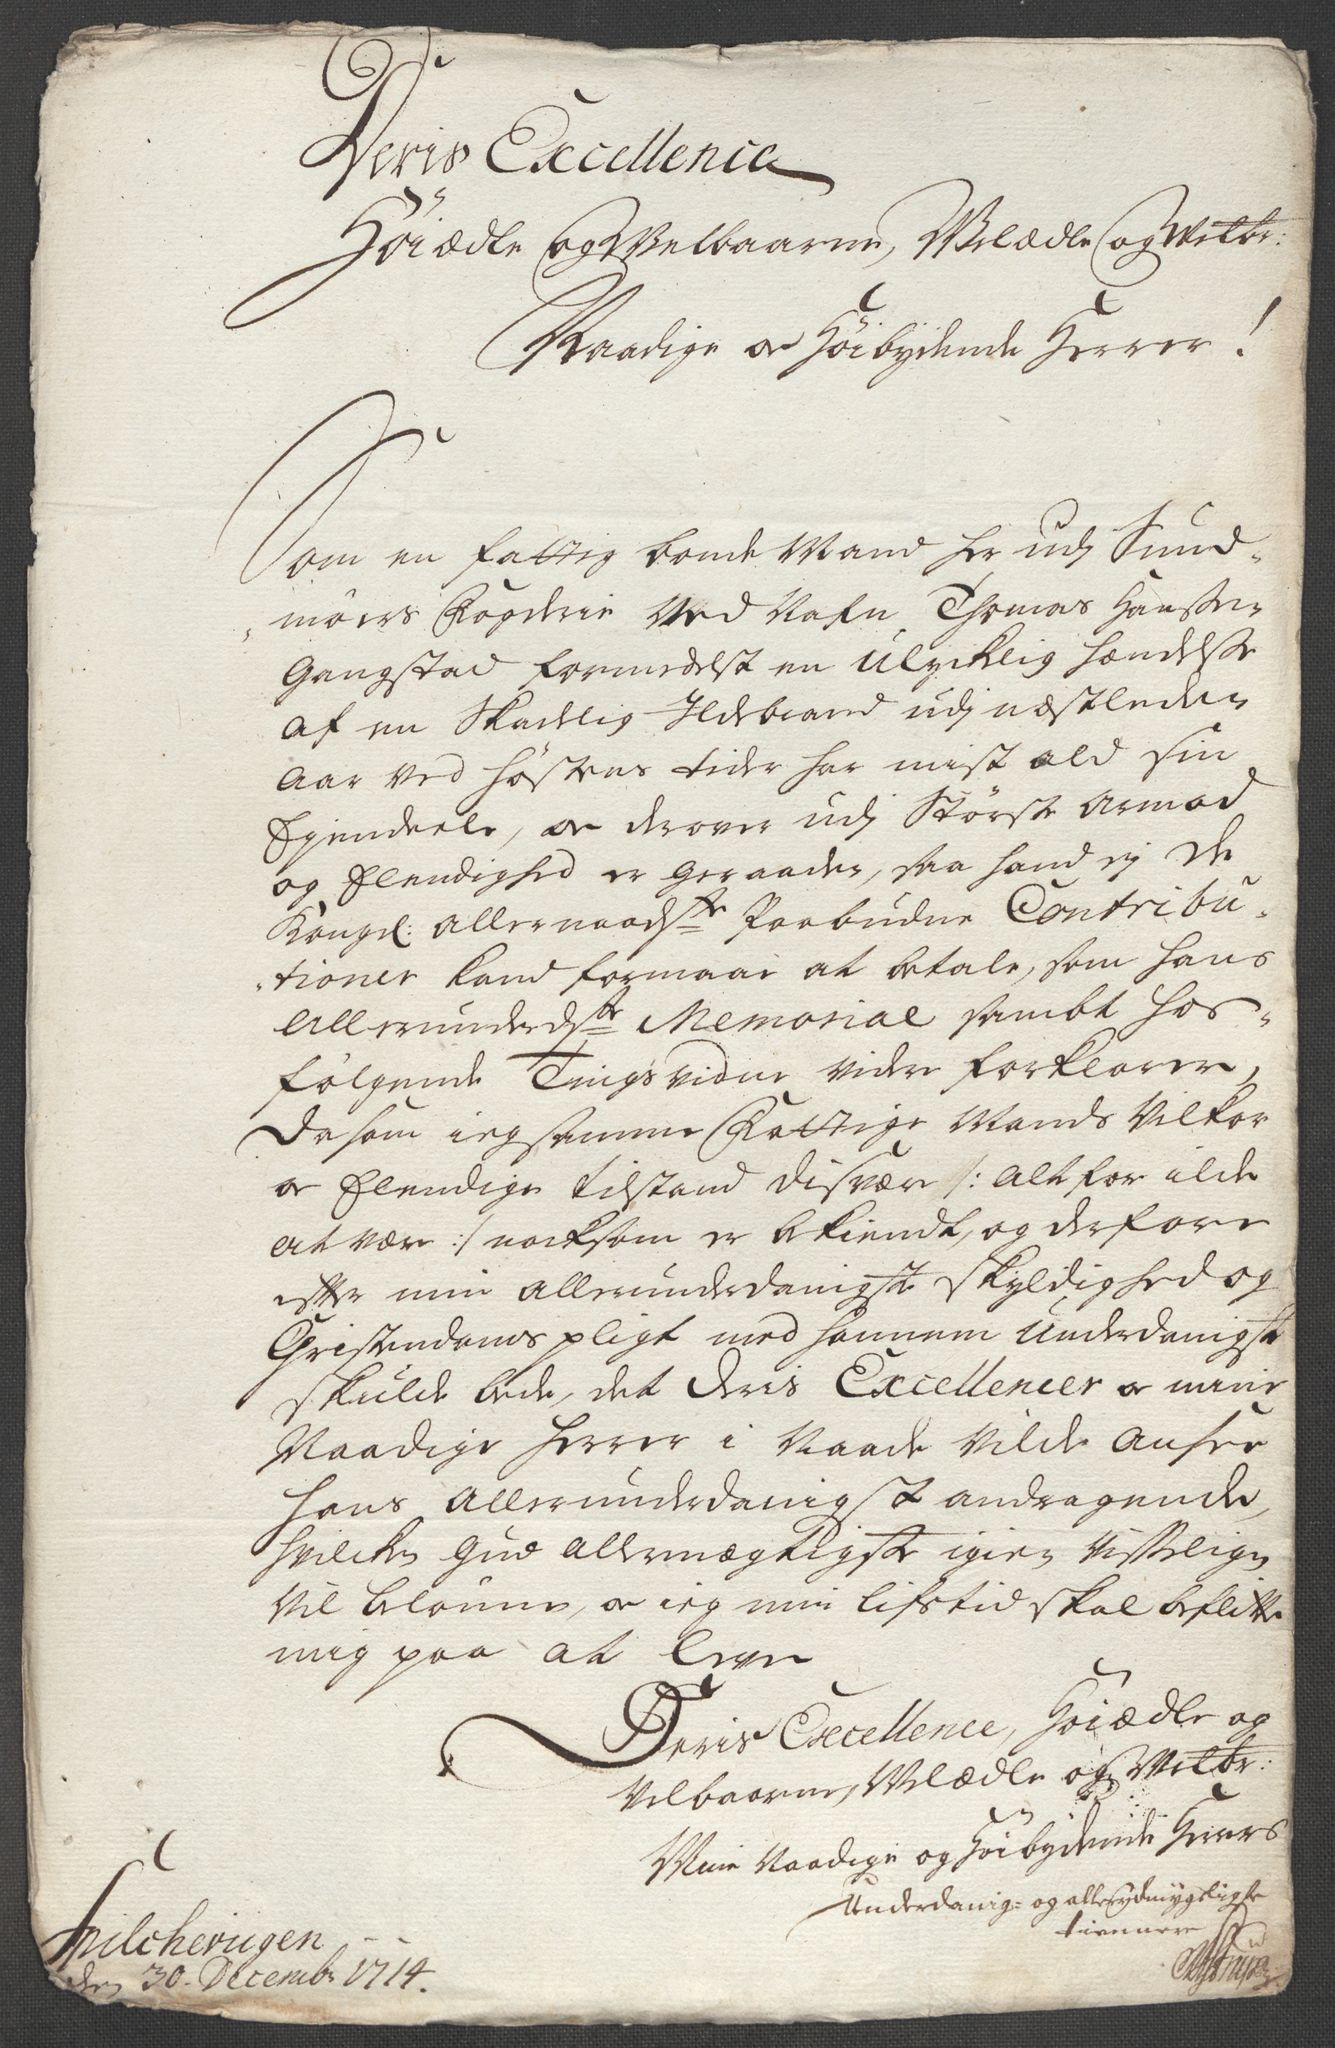 Deris Excellence
Høiædle og Velbaarne, Velædle og Velbr:
Naadige oc Høibydende Herrer!
Som en fattig bonde Mand her udj Sund-
møers Fogderie Ved Nafn Thomas Hanssen
Gangstad formedelst en Ulyckelig hændelsse
af en Skadelig Ildebrand udj næstleden
Aar ved høstens tider har mist ald sin
Ejendeele, oc derover udj Største Armod
og Elendighed er Geraaden, saa hand ej de
Kongel: allernaadste Paabudne Contribu-
tioner kand formaar at betale, som hans
Allerunderdste Memorial sambt hos-
følgende Tings vidne vider forklarer,
Da som ieg samme Fattige Mands Vilkor
oc Elendige tilstand disvær /: alt for ilde
at vær :/ nocksom er bekiendt, og derfore
efter min allerunderdanigste skyldighed og
Christendoms pligt med hannem Underdanigst
skulde bede, det Deris Excellencer oc mine
Naadige Herrer i Naade Vilde Ansee
hans Allerunderdanigst andragende,
hvilchen Gud allermægtigste igien Visselig
vil belønne, oc ieg min lifstid skal beflitte
mig paa at leve
Deris Excellence, Høiædle og
Velbaarne, Velædle og Velbr:
Mine Naadige og Høibydende Herrers
Underdanig- og allerydmygeligste
tiennere
Spilchevigen
den 30. Decembr 1714.